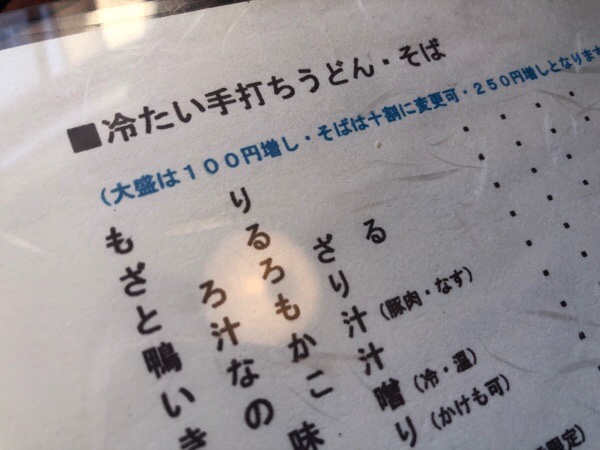 ■冷たい手打ちうどん・そば
(大盛は100円増し・そばは十割に変更可・250円増しとなります
もり
ざる
とろろざる
鴨汁もり
いなか汁(豚肉・なす)
きのこ汁
味噌(冷・温)
り(かけも可)
限定)